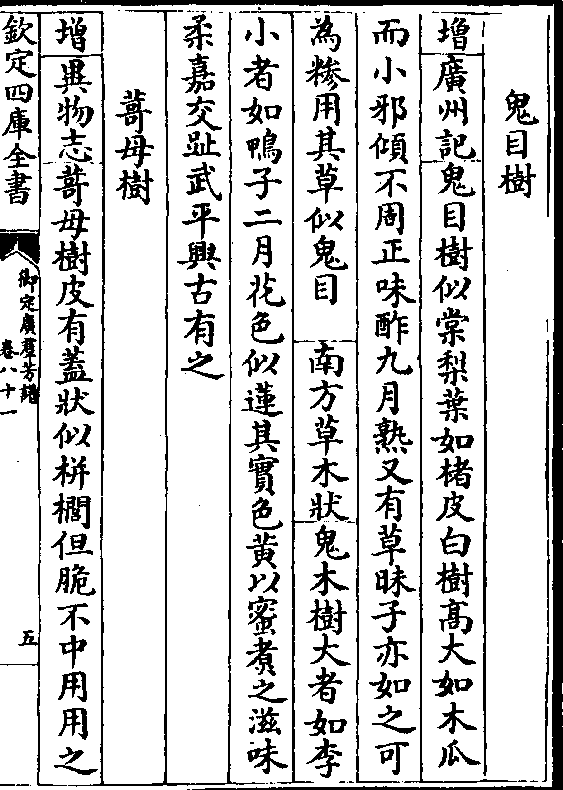 鬼目樹
增廣州記鬼目樹似棠梨葉如楮皮白樹髙大如木瓜
而小邪傾不周正味酢九月熟又有草昧子亦如之可
為糝用其草似鬼目　南方草木狀鬼木樹大者如李
小者如鴨子二月花色似蓮其實色黄以蜜煮之滋味
柔嘉交趾武平興古有之
䓘母樹
增異物志䓘母樹皮有葢狀似栟櫚但脆不中用用之
欽定四庫全書
御定廣羣芳譜
卷八十一
五